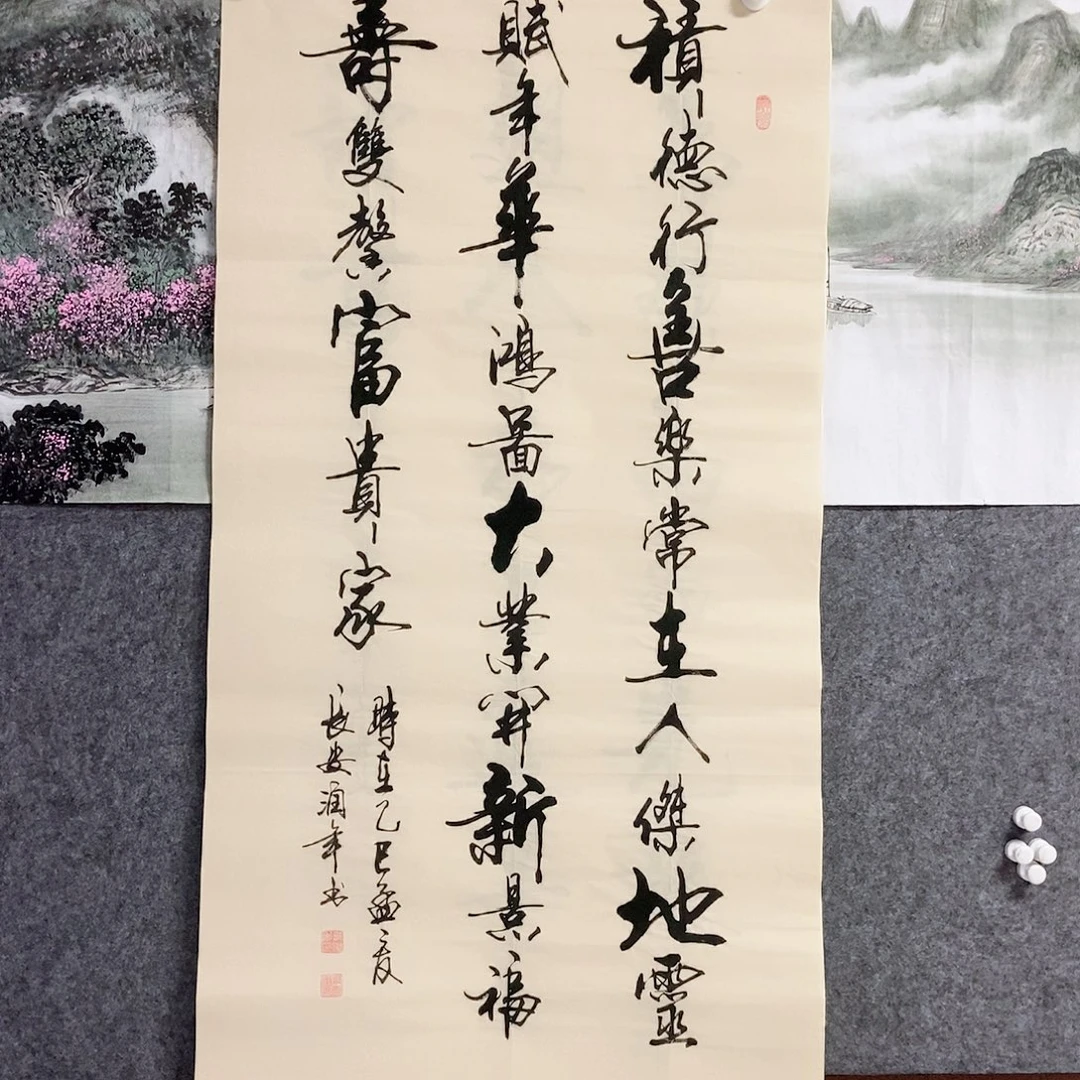 積德行善樂常在人傑地靈
賦年華鴻圖大業開新景福
壽雙馨富貴家
時在乙巳孟夏
長安潤年书